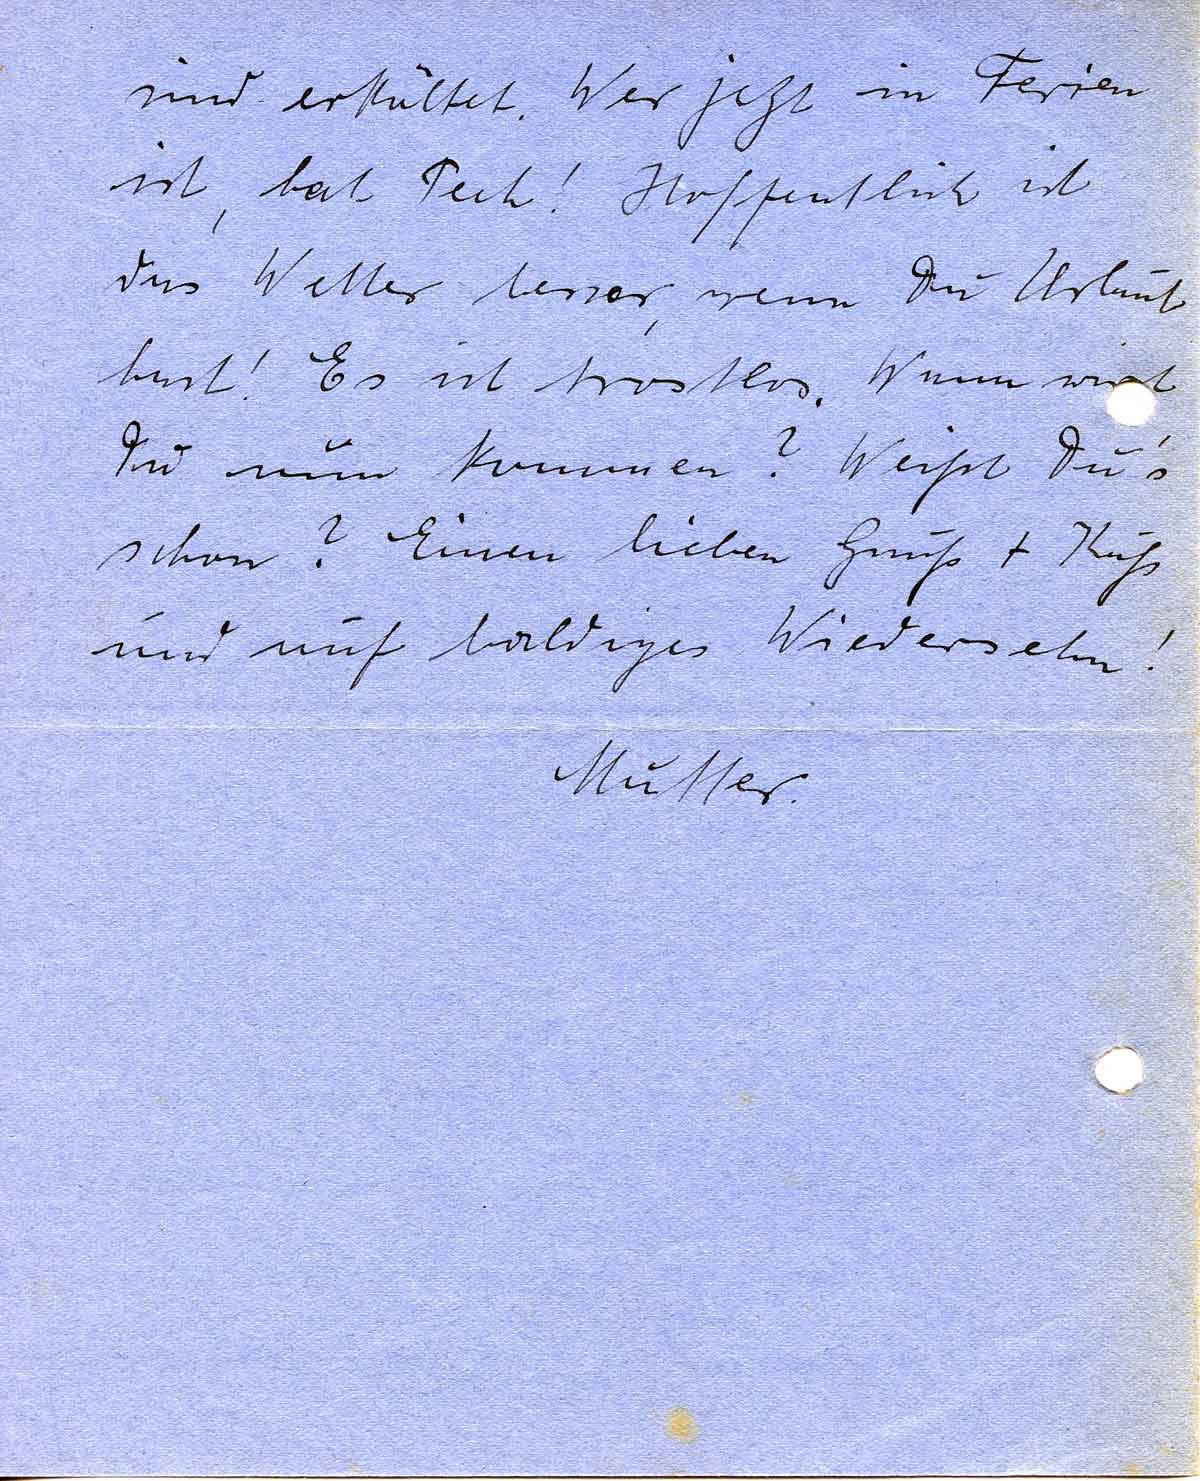 und erkältet. Wer jetzt in Ferien
ist, hat Pech! Hoffentlich ist
das Wetter besser, wenn Du Urlaub
hast! Es ist trostlos. Wann wirst
Du nun kommen? Weißt Du's
schon? Einen lieben Gruß + Kuß
und auf baldiges Wiedersehn!
Mutter.